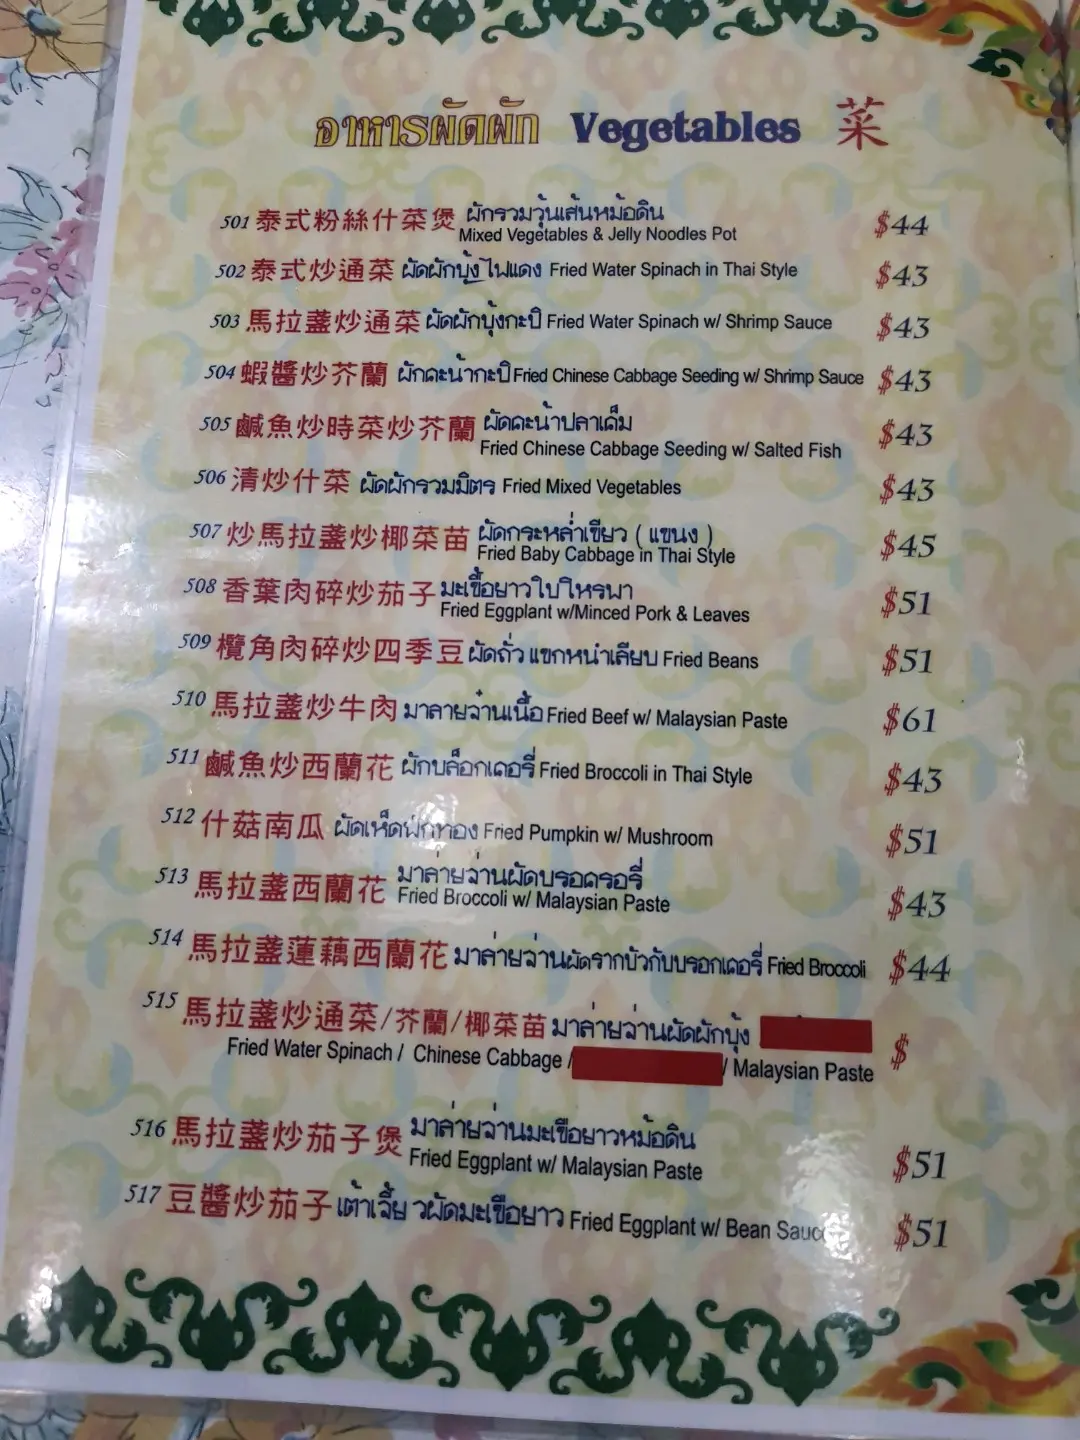 อาหารผัดผัก Vegetables 菜
501 泰式粉絲什菜煲 ผักรวมวุ้นเส้นหม้อดิน $44
Mixed Vegetables & Jelly Noodles Pot
502 泰式炒通菜 ผัดผักบุ้งไฟแดง Fried Water Spinach in Thai Style $43
503 馬拉盞炒通菜 ผัดผักบุ้งกะปิ Fried Water Spinach w/ Shrimp Sauce $43
504 蝦醬炒芥蘭 ผักคะน้ากะปิ Fried Chinese Cabbage Seeding w/ Shrimp Sauce $43
505 鹹魚炒時菜炒芥蘭 ผัดคะน้าปลาเค็ม $43
Fried Chinese Cabbage Seeding w/ Salted Fish
506 清炒什菜 ผัดผักรวมมิตร Fried Mixed Vegetables $43
507 炒馬拉盞炒椰菜苗 ผัดกระหล่ำเขียว ( แขนง ) $45
Fried Baby Cabbage in Thai Style
508 香葉肉碎炒茄子 มะเขื้อยาวใบโหรพา $51
Fried Eggplant w/Minced Pork & Leaves
509 欖角肉碎炒四季豆 ผัดถั่ว แขกหนำเลียบ Fried Beans $51
510 馬拉盞炒牛肉 มาลายจ๋านเนื้อ Fried Beef w/ Malaysian Paste $61
511 鹹魚炒西蘭花 ผักบล็อกเคอรี่ Fried Broccoli in Thai Style $43
512 什菇南瓜 ผัดเห็ดฟักทอง Fried Pumpkin w/ Mushroom $51
513 馬拉盞西蘭花 มาล่ายจ่านผัดบรอดรอรี่ $43
Fried Broccoli w/ Malaysian Paste
514 馬拉盞蓮藕西蘭花 มาล่ายจ่านผัดรากบัวกับบรอกเคอรี่ Fried Broccoli $44
515 馬拉盞炒通菜/芥蘭/椰菜苗 มาล่ายจ่านผัดผักบุ้ง $
Fried Water Spinach / Chinese Cabbage / / Malaysian Paste
516 馬拉盞炒茄子煲 มาล่ายจ่านมะเขือยาวหม้อดิน $51
Fried Eggplant w/ Malaysian Paste
517 豆醬炒茄子 เต้าเจี้ย วผัดมะเขือยาว Fried Eggplant w/ Bean Sauc $51